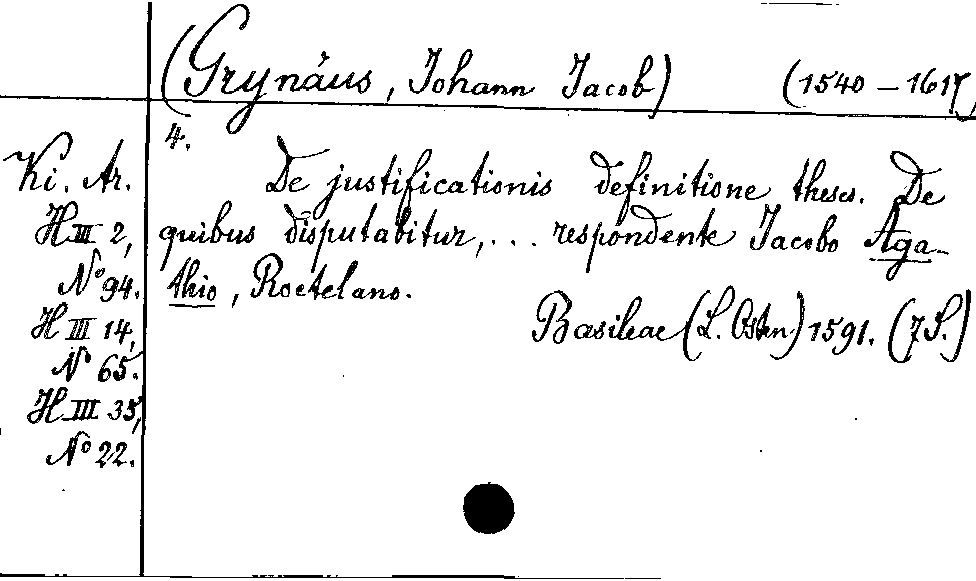 (Grynäus, Johann Jacob) (1540 – 1617)
4.
Ki. Ar.
H III 2,
No 94.
H III 14,
No 65.
H III 35,
No 22.
De justificationis definitione theses. De
quibus disputabitur, ... respondente Jacobo Aga-
thio, Roetelano.
Basileae (L. Osten) 1591. (7 S.)